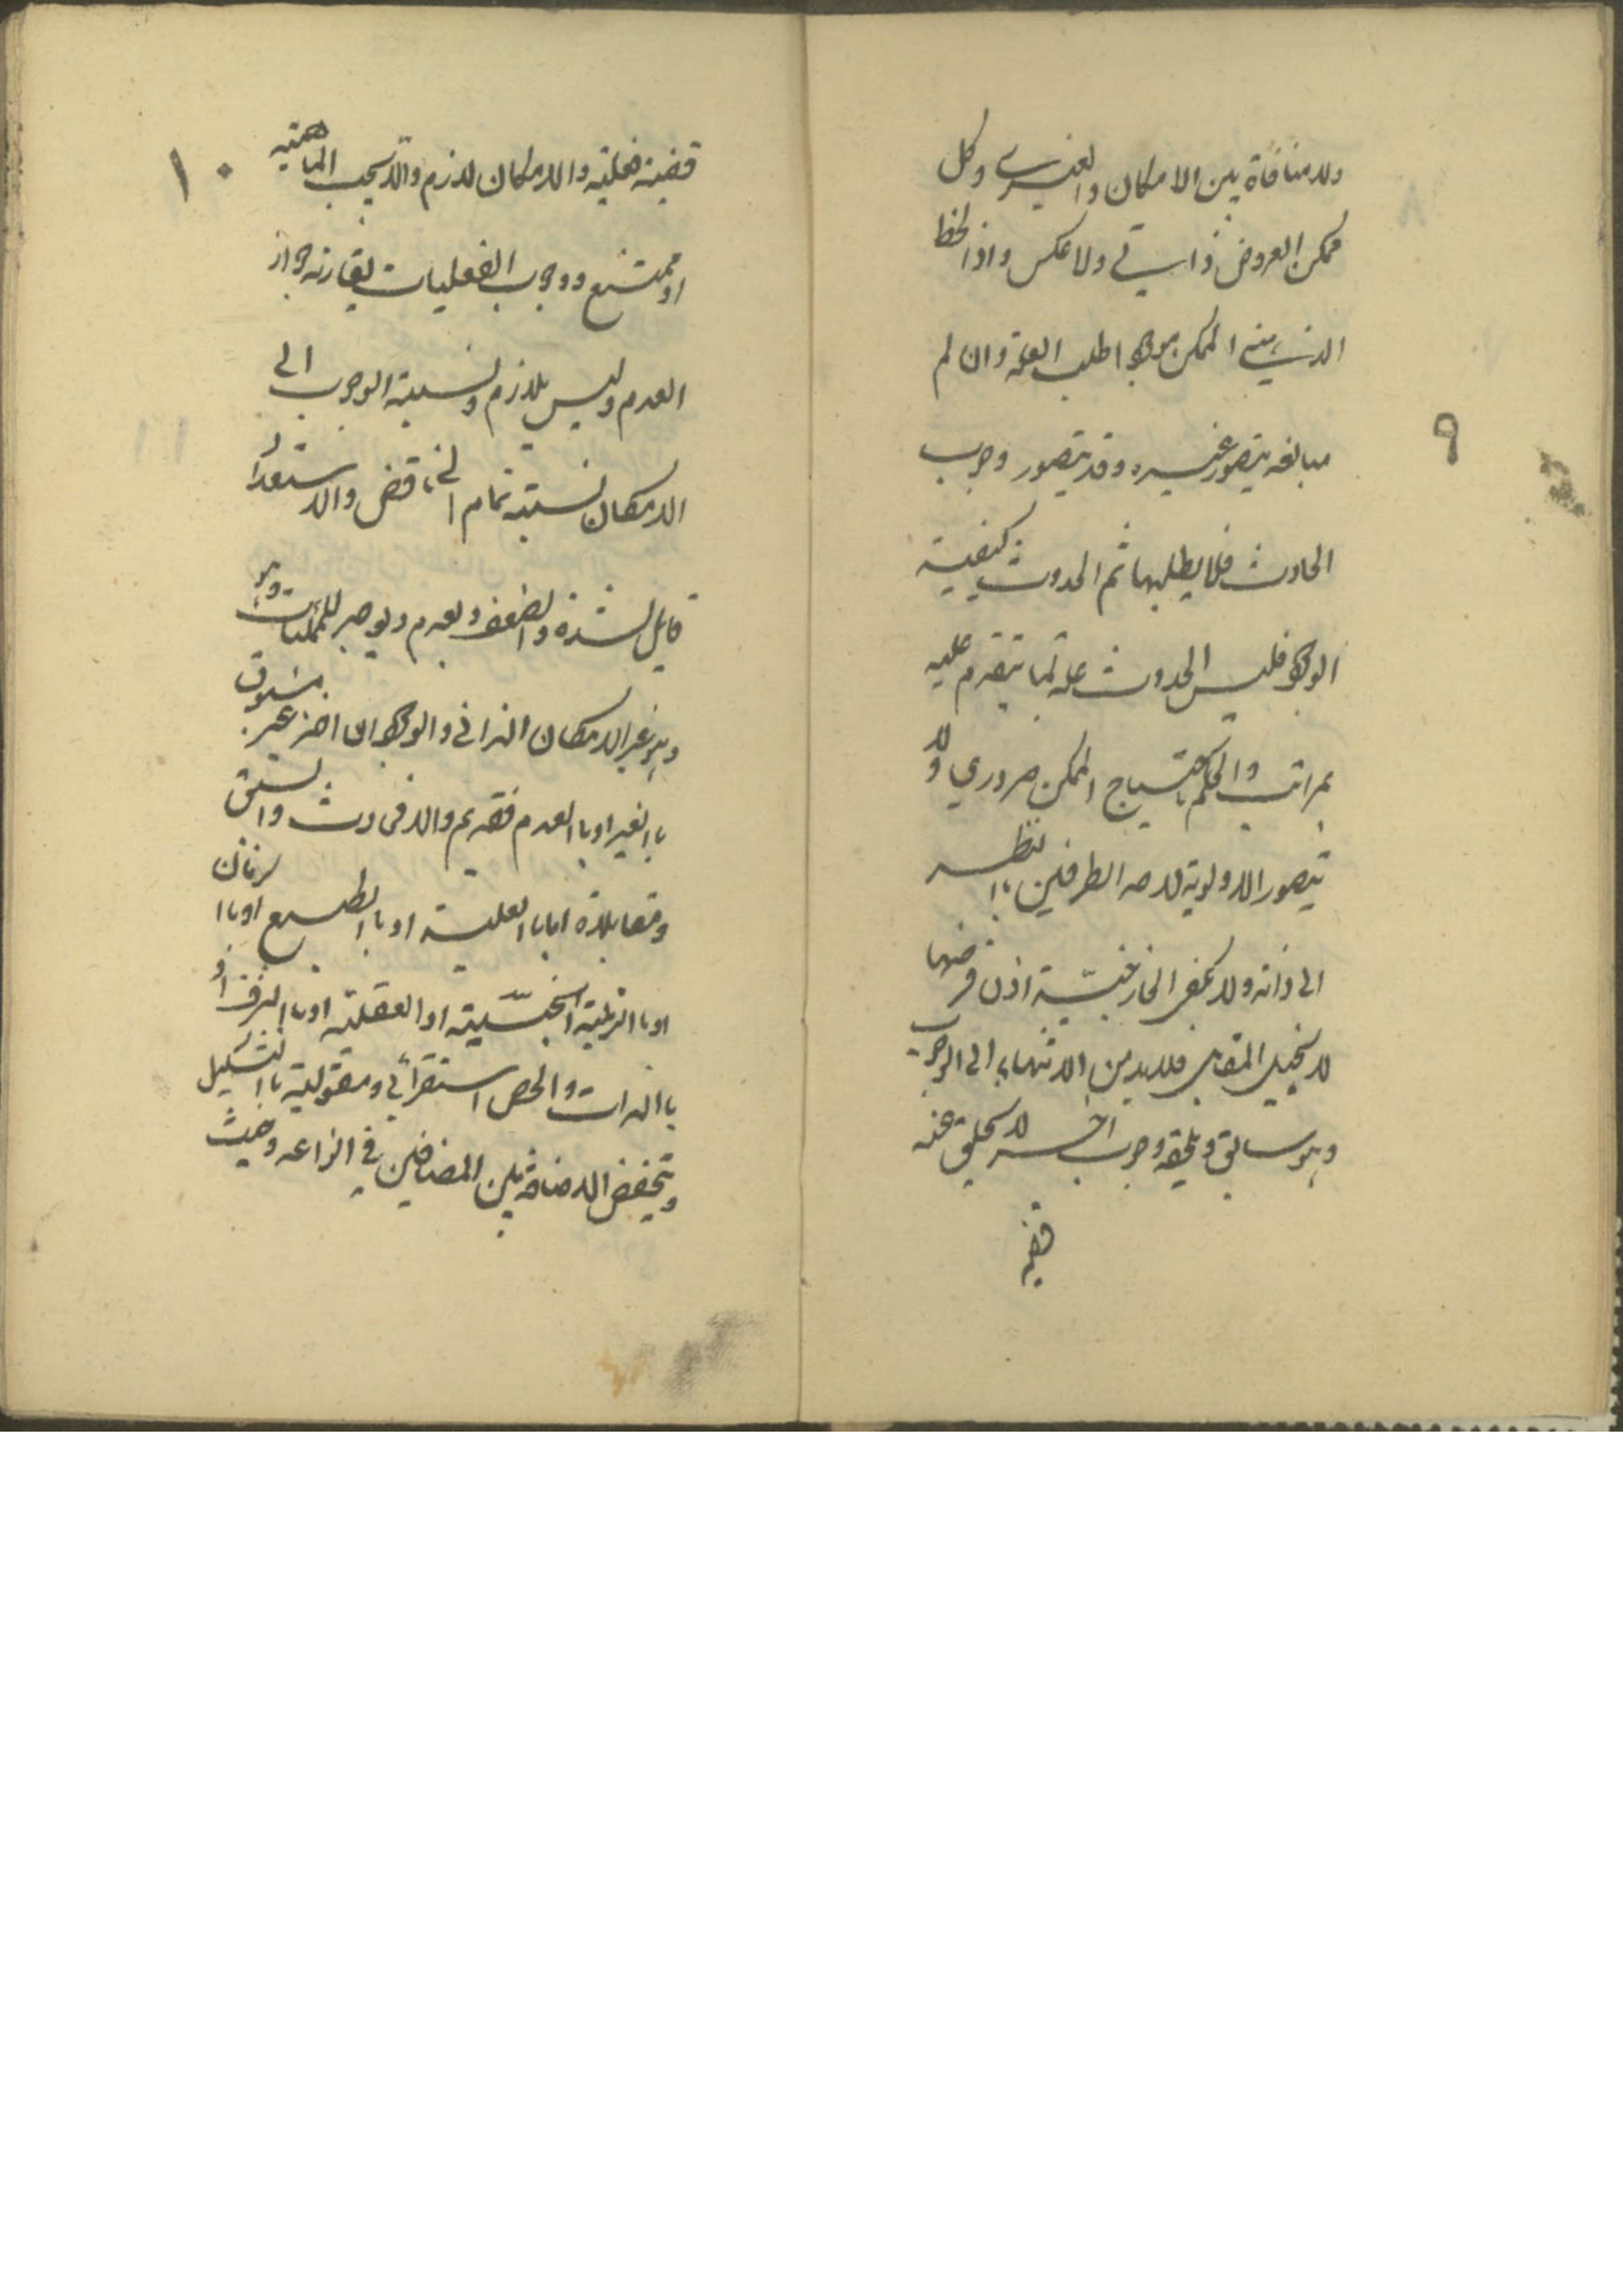 ٩
ولا منافاة بين الامكان والغيري وكل
ممكن العروض ذاتي ولا عكس واذا لحظ
الذهن الممكن موجودا طلب العلة وان لم
يتصور غيره وقد يتصور وجوب
الحادث فلا يطلبها ثم الحدوث كيفية
الوجود فليس الحدوث علة لما يتقدم عليه
بمراتب والحكم باحتياج الممكن ضروري ولا
يتصور الاولوية لاحد الطرفين باا لنظر
الى ذاته ولا تكفي الخارجية اذن فرضها
لا يحيل المقابل فلا بد من الانتهاء الى الوجوب
وهو سابق ويلحقه وجوب اخر لا يخلو عنه
قضية
١٠
قضية فعلية والامكان لازم والا تجب الماهية
او تمتنع ووجوب الفعليات يقارنه جواز
العدم وليس بلازم ونسبة الوجوب الى
الامكان نسبة تمام الى ناقص والاستعداد
قابل للشدة والضعف ويعدم ويوجد للممكنات
وهو غير الامكان الذاتي والوجود ان اخذ غير مسبوق
باا لغير او باا لعدم فقديم والا فحادث والسبق
ومقابلاه اما باا لعلية او باا لطبع او باا لزمان
او باا لرتبة الحسية او العقلية او باا لشرف او
باا لذات والحصر استقرائي ومقولية باا لتشكيك
وتنحفظ الاضافة بين المضافين في انواعه وحيث